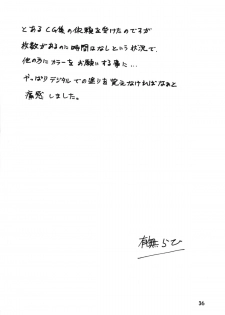 とあるCG集の依頼を受けたのですが
枚数があるのに時間はなしという状況で、
他の方にカラーをお願いする事に…
やっぱりデジタルでの塗りも覚えなければなぁと
痛感しました。
有無らひ
36